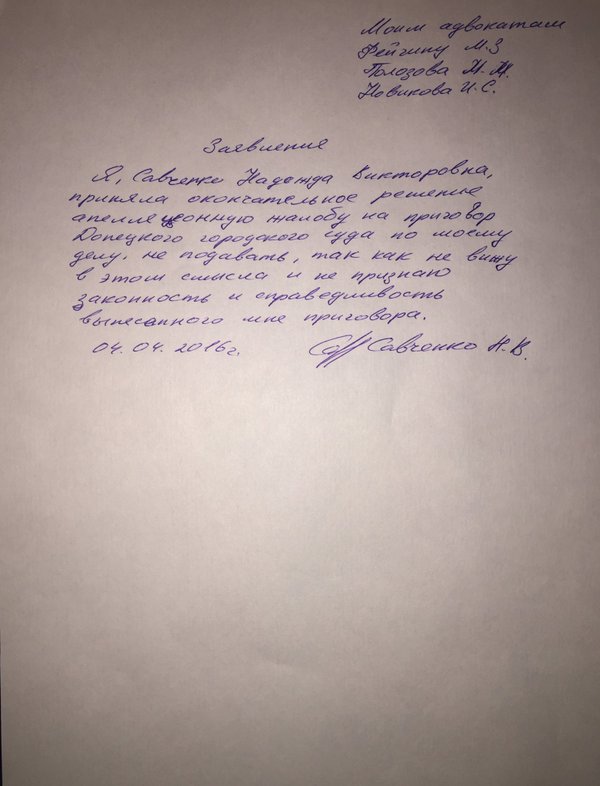 Моим адвокатам
Фейгину М.З
Полозова Н.Н.
Новикова И.С.
Заявления
Я, Савченко Надежда Викторовна,
приняла окончательное решение
апелляционную жалобу на приговор
Донецкого городского суда по моему
делу, не подавать, так как не вижу
в этом смысла и не признаю
законность и справедливость
вынесенного мне приговора.
04.04.2016г. Савченко Н.В.